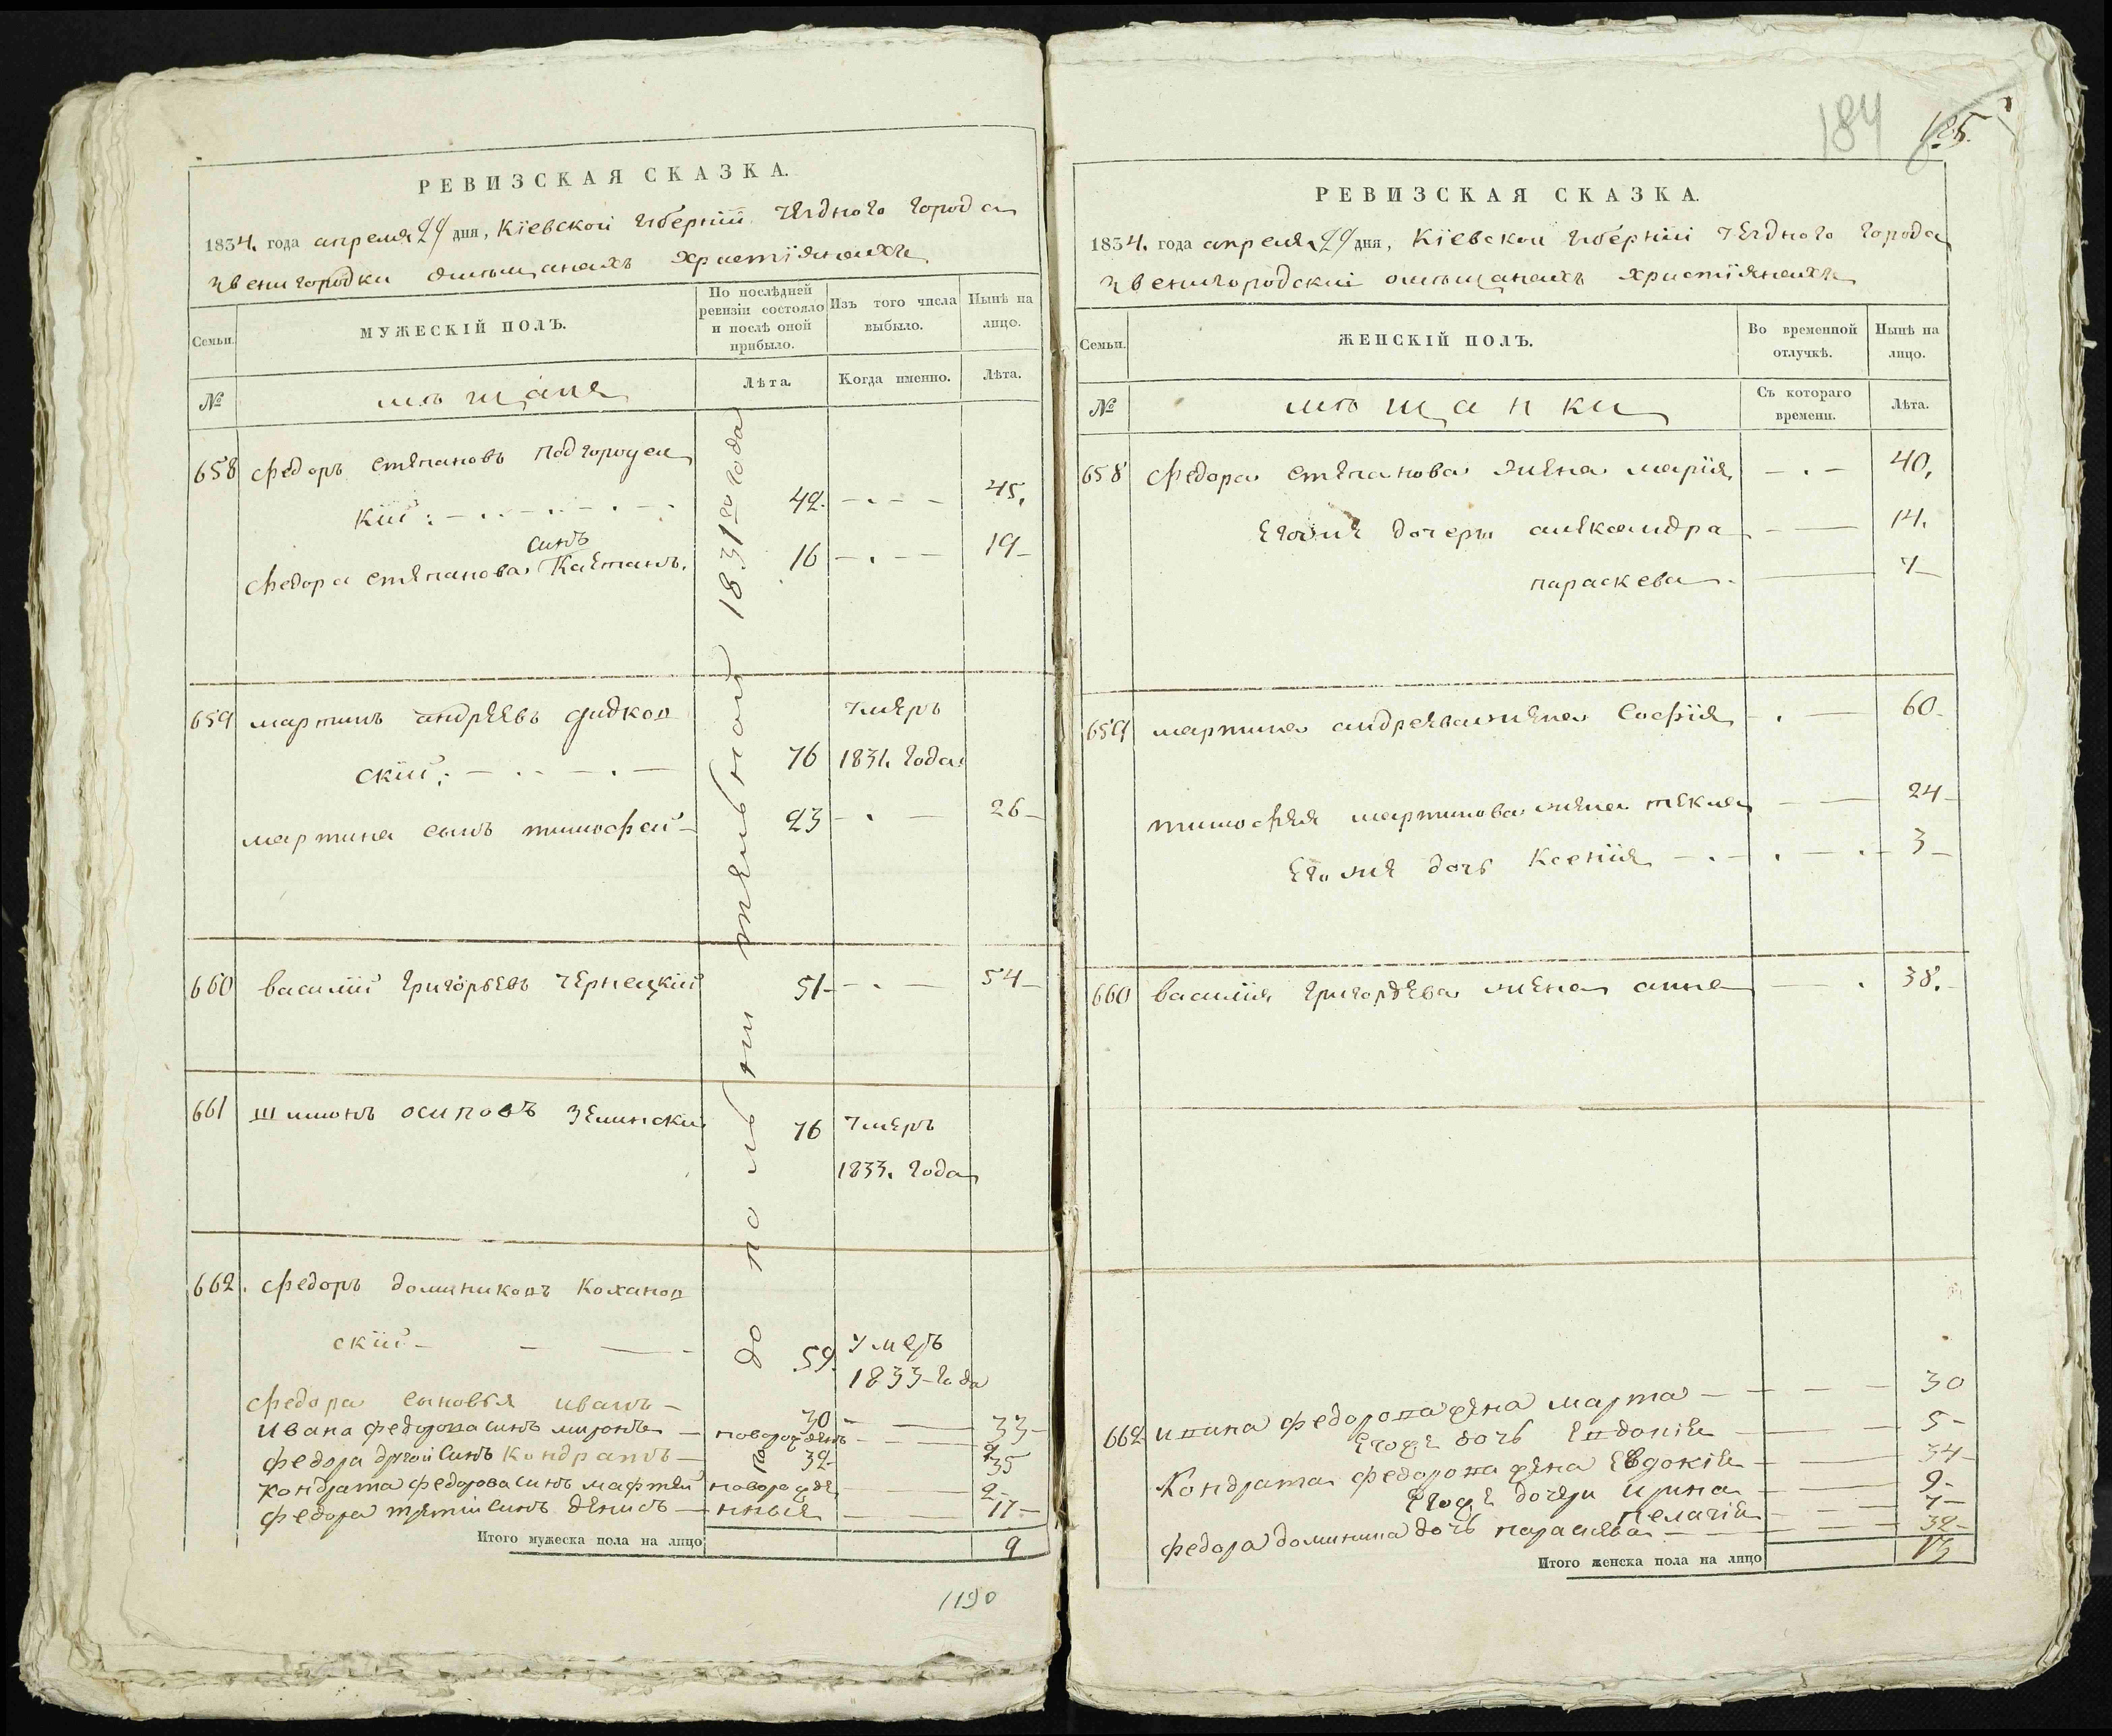 РЕВИЗСКАЯ СКАЗКА.
1834. года апреля 29 дня, Кіевской губерніи уезднаго города
звенигородки омѣщанахъ христіянахъ
Семьи.
МУЖЕСКІЙ ПОЛЪ.
По послѣдней ревизіи состояло и послѣ оной прибыло.
Изъ того числа выбыло.
Нынѣ на лицо.
№
мѣщаня
Лѣта.
Когда именно.
Лѣта.
дополнительной 1831го года
658 Федоръ степановъ подгороцел
кій: 42. 45.
сынъ
Федора степанова Каетанъ. 16 19
659 мартинъ андреевъ дидков умеръ
скій: 76 1831. года.
мартина сынъ тимофей 23 26
660 василій григорьевъ чернецкій 51 54
661 шимонъ осиповъ зелинскій 76 умеръ
1833. года
662. Федоръ доминиковъ Коханов
скій 59. умеръ
1833 года
Федора сыновья иванъ 30 33
Ивана федорова синъ миронъ новорожденъ 2
Федора другой Синъ Кондратъ 32 35
Кондрата федорова синъ мафтей новорожде 2
Федора третій Синъ денисъ нные 11
Итого мужеска пола на лицо 9
1190
184
185.
РЕВИЗСКАЯ СКАЗКА.
1834. года апреля 29 дня, Кіевской губерніи уезднаго города
звенигородский омѣщанахъ христіянахъ
Семьи.
ЖЕНСКІЙ ПОЛЪ.
Во временной отлучкѣ.
Нынѣ на лицо.
№
мѣщанки
Съ котораго времени.
Лѣта.
658 Федора степанова жена марія 40.
егоже дочери александра 14.
параскева 7
659 мартина андреева жена Софія 60
тимофея мартинова жена текля 24
егоже дочь Ксенія 3
660 василія григорьева жена анна 38.
662 ивана федорова жена марта 30
Егоже дочь Евдокія 5
Кондрата федорова жена Евдокія 34
Егоже дочери Ирина 9
Пелагія 7
Федора доминика дочь параскева 32
Итого женска пола на лицо 13